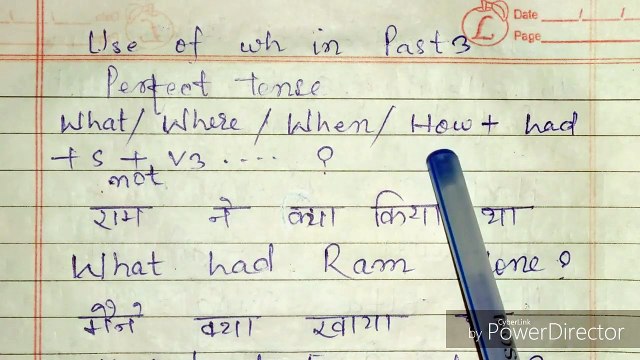 Date / /
Page
Use of wh in Past 3
Perfect tense
What/ Where / When/ How + had
+ S + V3 .... ?
not
राम ने क्या किया था
What had Ram one?
मैंने क्या खाया
CyberLink
by PowerDirector